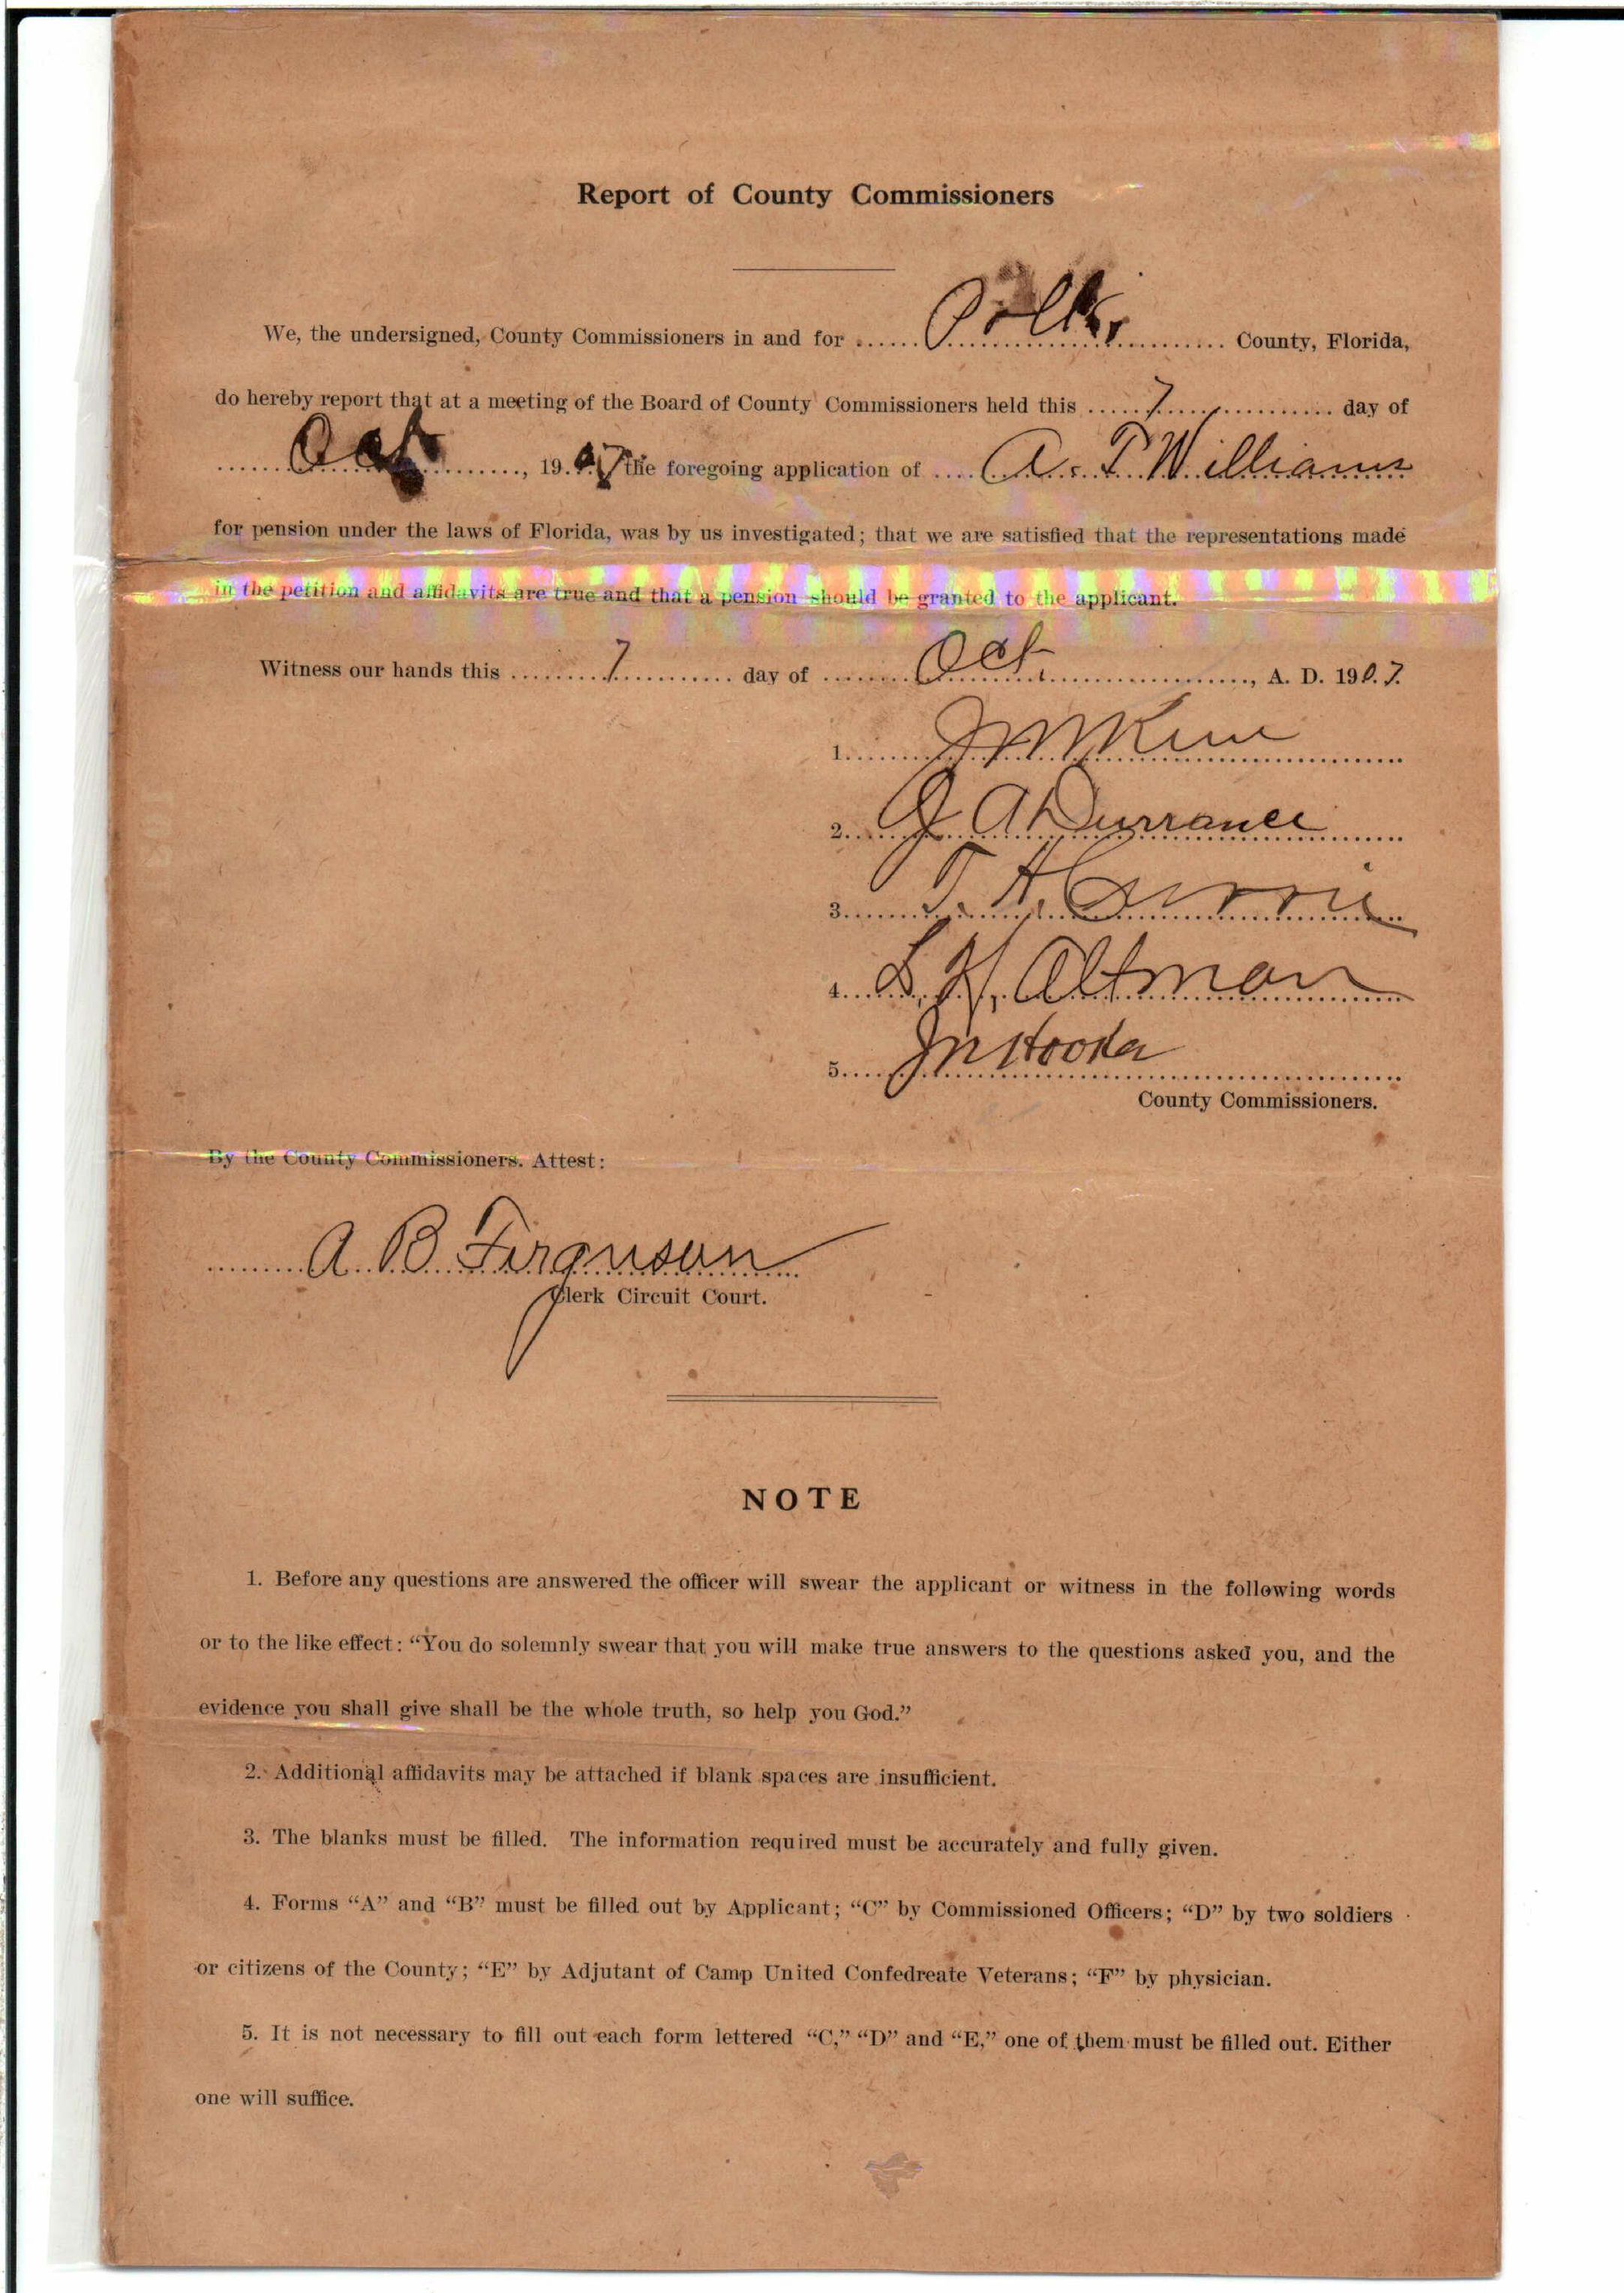 Report of County Commissioners
We, the undersigned, County Commissioners in and for Polk County, Florida,
do hereby report that at a meeting of the Board of County Commissioners held this 7 day of
Oct, 1907 the foregoing application of A. T. Williams
for pension under the laws of Florida, was by us investigated; that we are satisfied that the representations made
in the petition and affidavits are true and that a pension should be granted to the applicant.
Witness our hands this 7 day of Oct., A. D. 1907.
1.
2. J A Durrance
3. T. H.
4. L. H. Altman
5.
County Commissioners.
By the County Commissioners. Attest:
A. B. Ferguson
Clerk Circuit Court.
NOTE
1. Before any questions are answered the officer will swear the applicant or witness in the following words
or to the like effect: “You do solemnly swear that you will make true answers to the questions asked you, and the
evidence you shall give shall be the whole truth, so help you God.”
2. Additional affidavits may be attached if blank spaces are insufficient.
3. The blanks must be filled. The information required must be accurately and fully given.
4. Forms “A” and “B” must be filled out by Applicant; “C” by Commissioned Officers; “D” by two soldiers
or citizens of the County; “E” by Adjutant of Camp United Confedreate Veterans; “F” by physician.
5. It is not necessary to fill out each form lettered “C,” “D” and “E,” one of them must be filled out. Either
one will suffice.